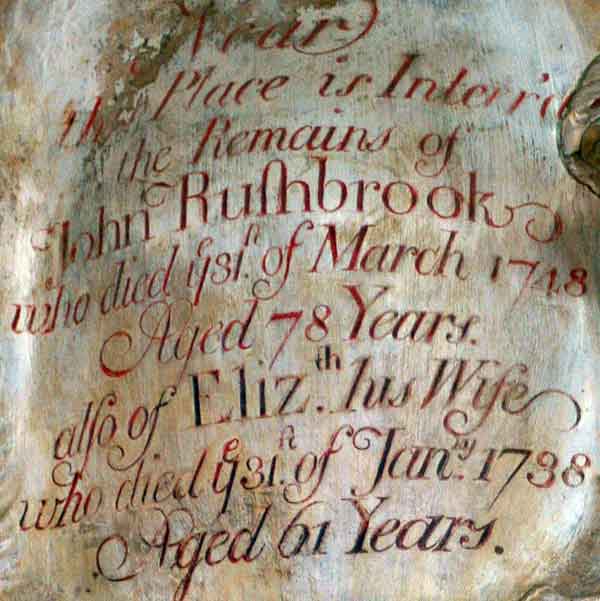 Near
this Place is Interr'd
the Remains of
John Ruſhbrook
who died yͤ 31ſt. of March 1748
Aged 78 Years.
alſo of Eliz.th his Wife
who died yͤ 31ſt. of Janry. 1738
Aged 61 Years.